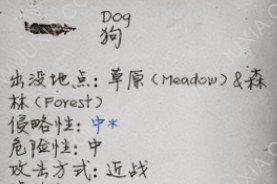 Dog
狗
出没地点：草原（Meadow）&森
林（Forest）
侵略性：中*
危险性：中
攻击方式：近战